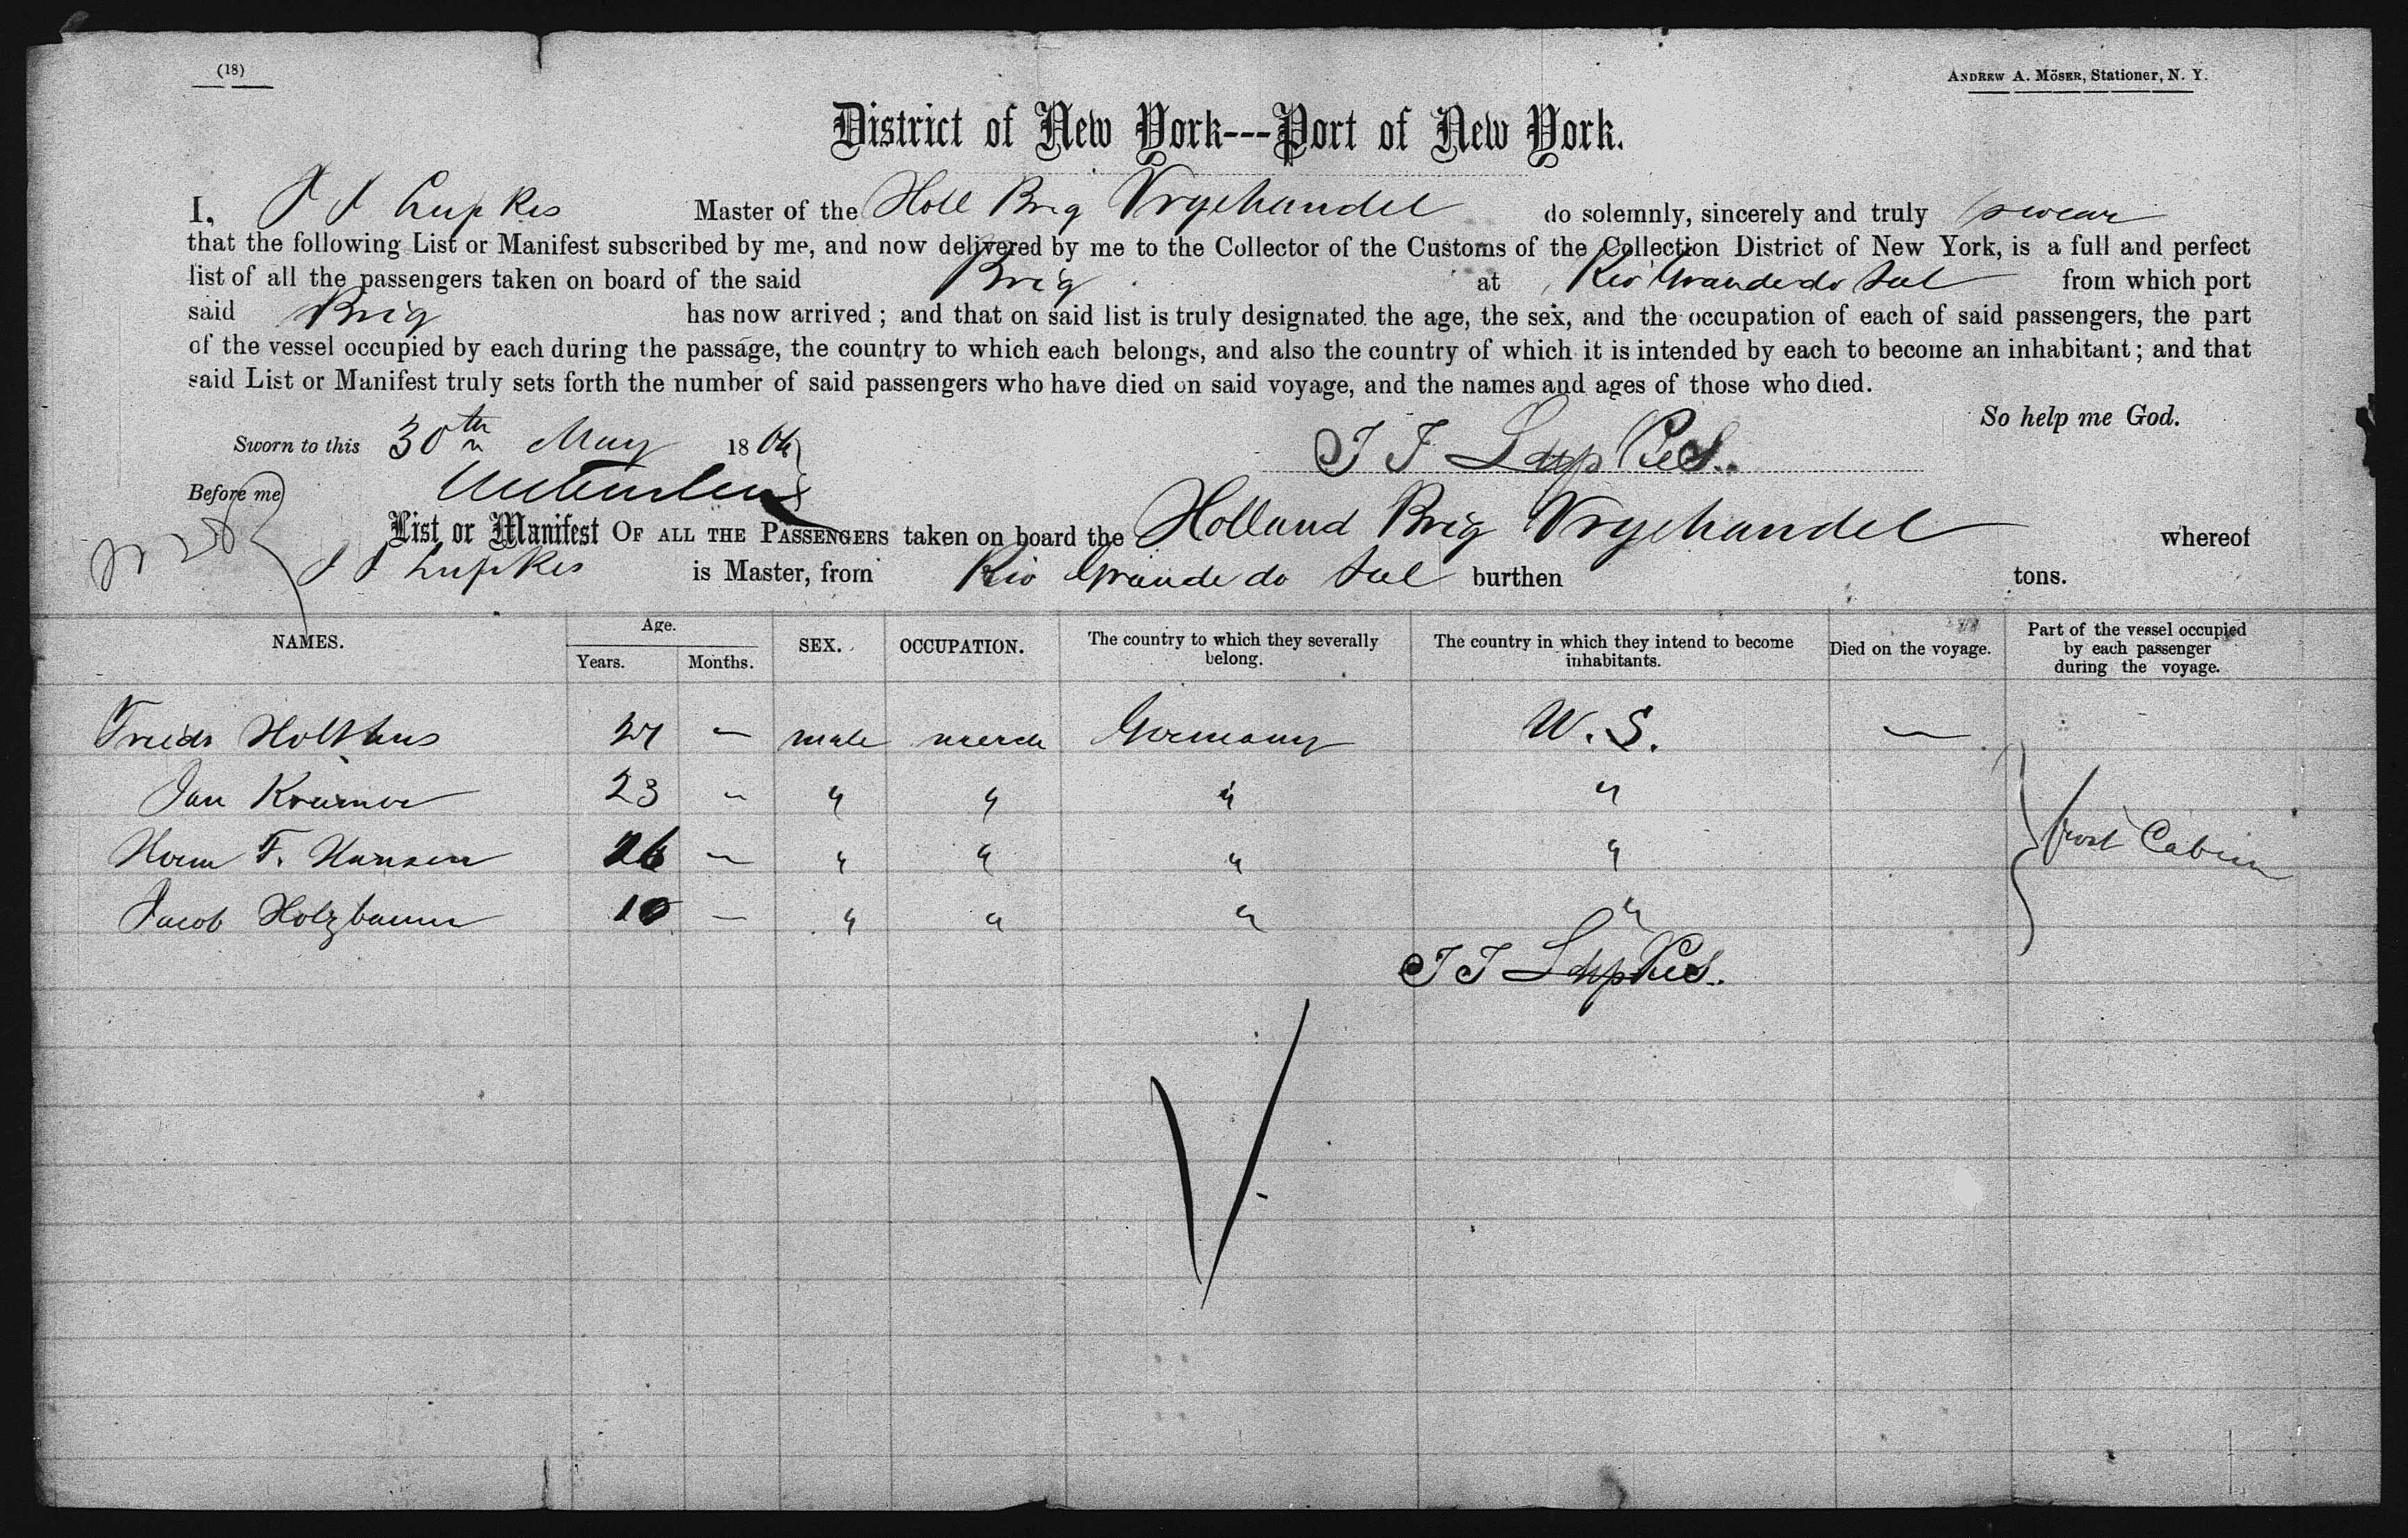 (18)
ANDREW A. MÖSER, Stationer, N. Y.
District of New York---Port of New York.
I, J J Lupkes Master of the Holl Brig Vryehandel do solemnly, sincerely and truly swear
that the following List or Manifest subscribed by me, and now delivered by me to the Collector of the Customs of the Collection District of New York, is a full and perfect
list of all the passengers taken on board of the said Brig at Rio Grande do Sul from which port
said Brig has now arrived; and that on said list is truly designated the age, the sex, and the occupation of each of said passengers, the part
of the vessel occupied by each during the passage, the country to which each belongs, and also the country of which it is intended by each to become an inhabitant; and that
said List or Manifest truly sets forth the number of said passengers who have died on said voyage, and the names and ages of those who died.
So help me God.
Sworn to this 30th May 18
J J Lupkes.
Before me
List or Manifest OF ALL THE PASSENGERS taken on board the Holland Brig Vryehandel whereof
J J Lupkes is Master, from Rio Grande do Sul burthen tons.
NAMES. Age. Years. Months. SEX. OCCUPATION. The country to which they severally belong. The country in which they intend to become inhabitants. Died on the voyage. Part of the vessel occupied by each passenger during the voyage.
Friedr Holthus — male merch Germany U. S. —
Jan Kramer 23 - " " " "
Herm F. Hansen 26 - " " " "
Jacob Holzbaum 10 - " " " "
first Cabin
J J Lupkes.